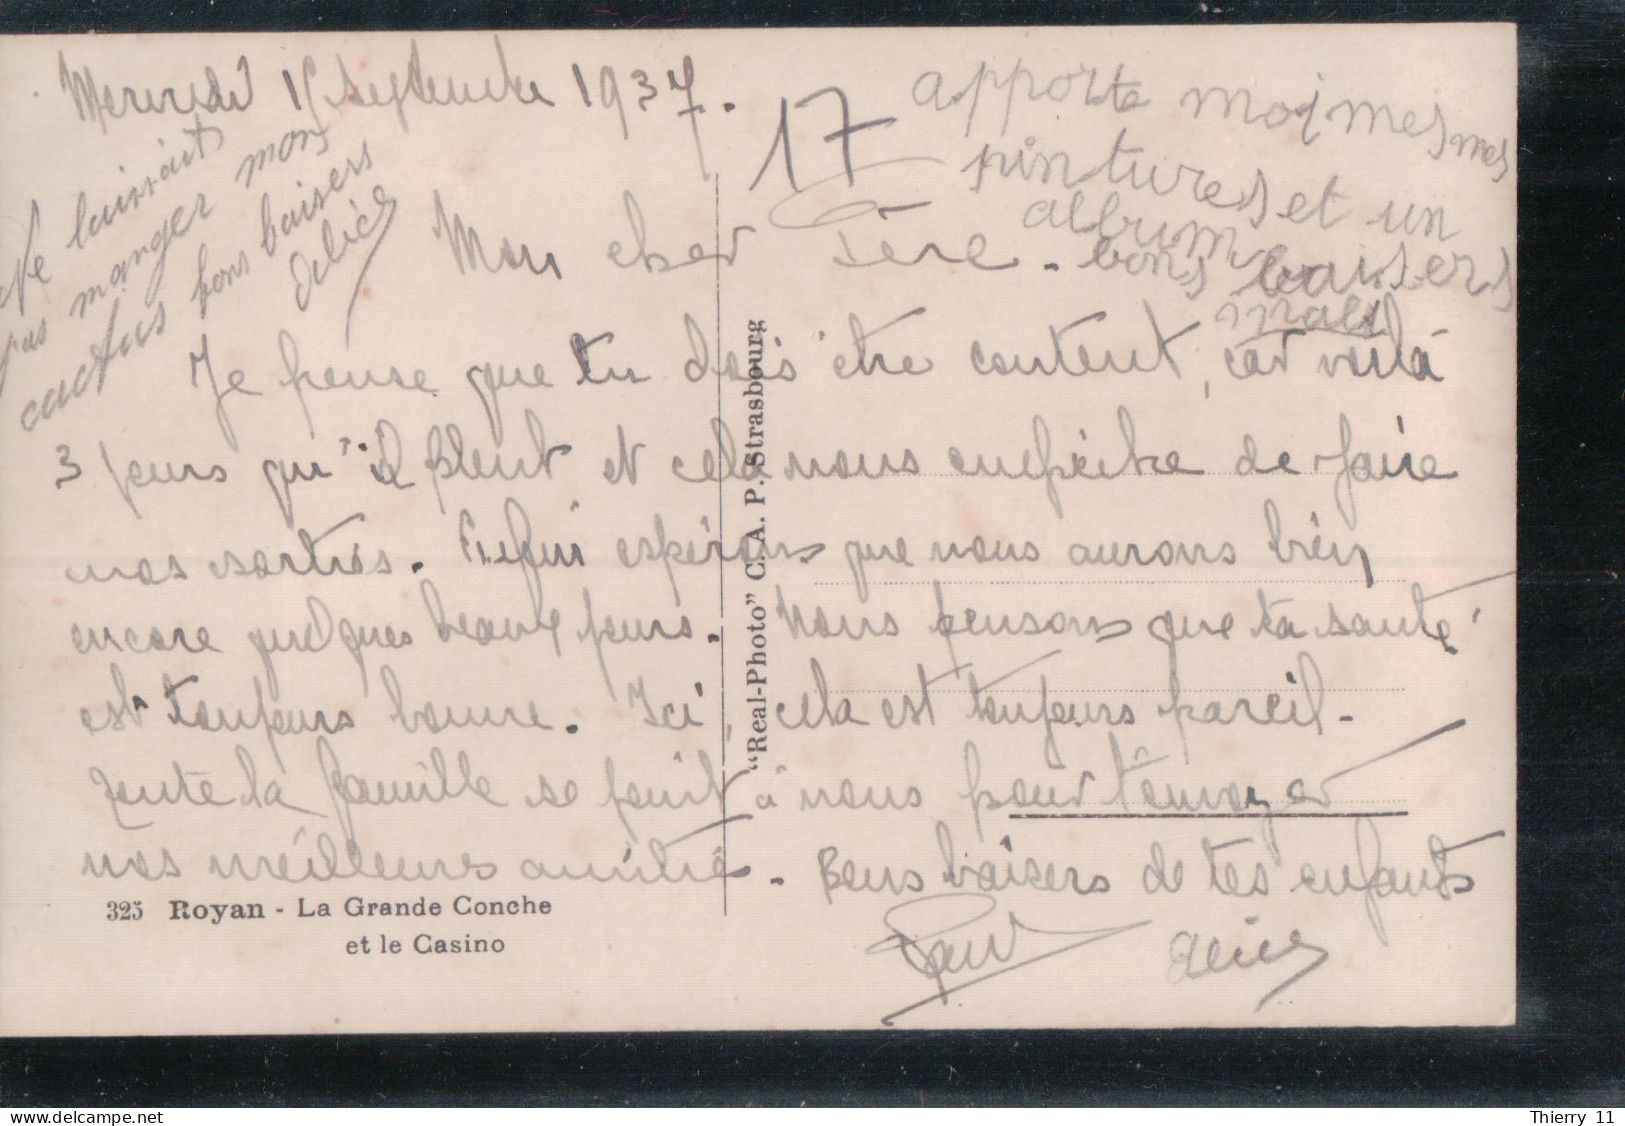 Mercredi 15 Septembre 1937.
17
apporte moi mes mes
pintures et un
album
bons baisers
Ne laissait
pas manger mons
cactus bons baisers
Mon cher Père.
Je pense que tu dois être content, car voilà
3 jours qu'il pleut et cela nous empêche de faire
nos sorties. Enfin espérons que nous aurons bien
encore quelques beaux jours. Nous pensons que ta santé
est toujours bonne. Ici, cela est toujours pareil.
Toute la famille se joint à nous pour t'envoyer
nos meilleures amitié. Bons baisers de tes enfants
Paul
"Real-Photo" C. A. P. Strasbourg
325 Royan - La Grande Conche
et le Casino
Thierry 11